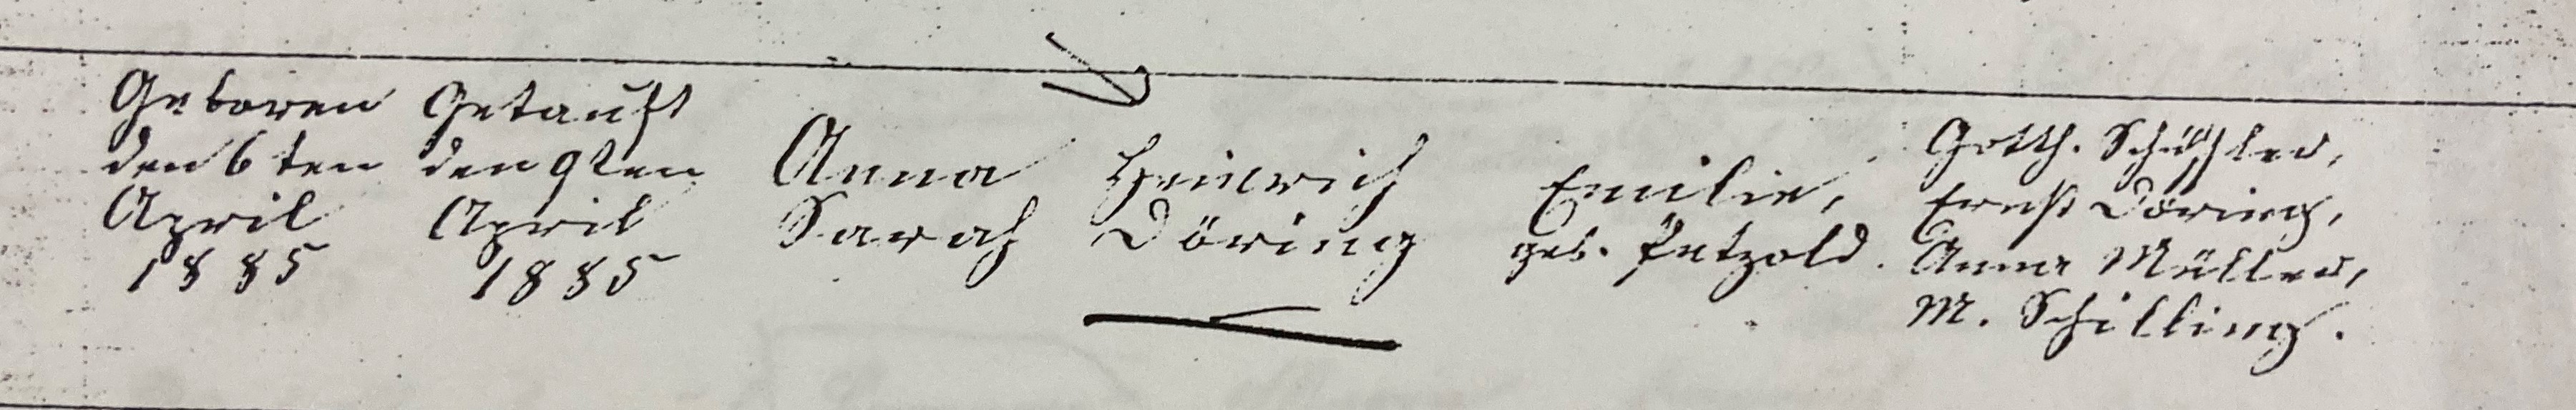 Geboren
den 6ten
April
1885
Getauft
den 9ten
April
1885
Anna
Sarah
Heinrich
Döring
Emilie,
geb. Petzold.
Gotth. Schüssler,
Ernst Döring,
Anna Müller,
M. Schilling.